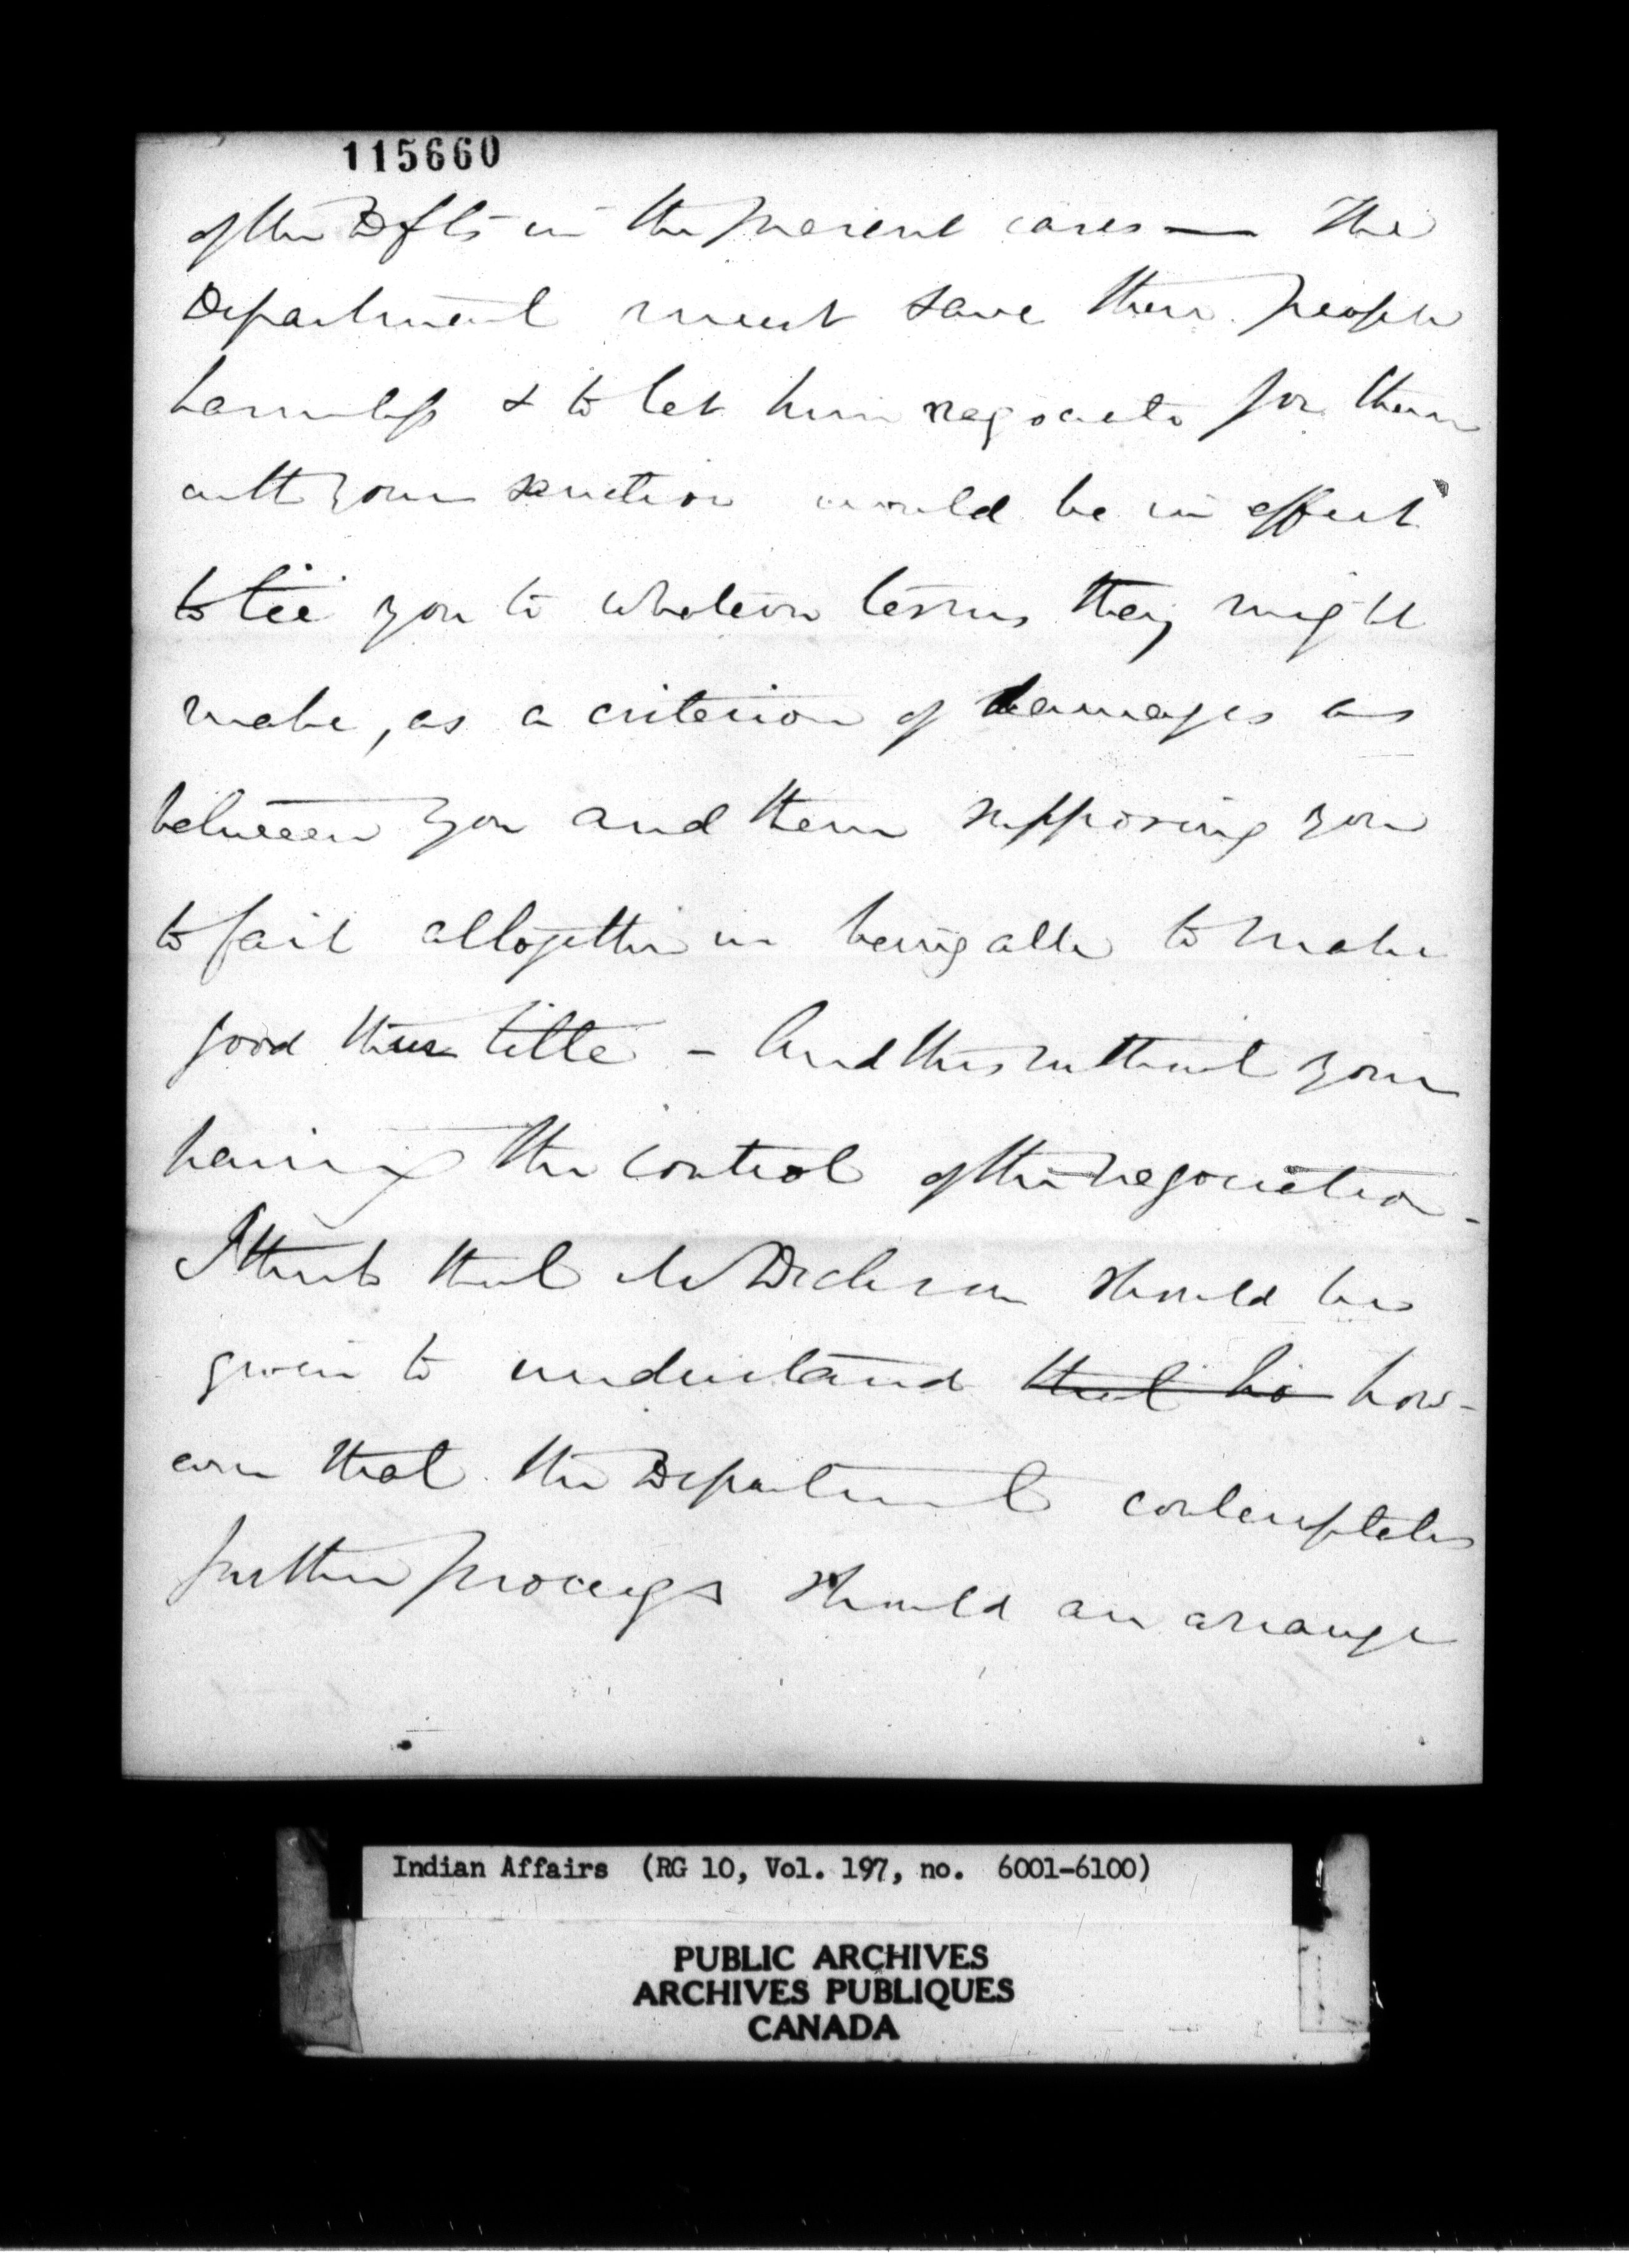 115660
of the Defts in the present cases — The
Department must save these people
harmless & to let him negociate for them
with your sanction would be in effect
to tie you to whatever terms they might
make, as a criterion of damages as
between you and them supposing you
to fail altogether in being able to make
good their title - And this without your
having the control of the negociation -
I think that Mr Dickson should be
given to understand that he how-
ever that the Department contemplates
further proceegs should an arrange
Indian Affairs (RG 10, Vol. 197, no. 6001-6100)
PUBLIC ARCHIVES
ARCHIVES PUBLIQUES
CANADA